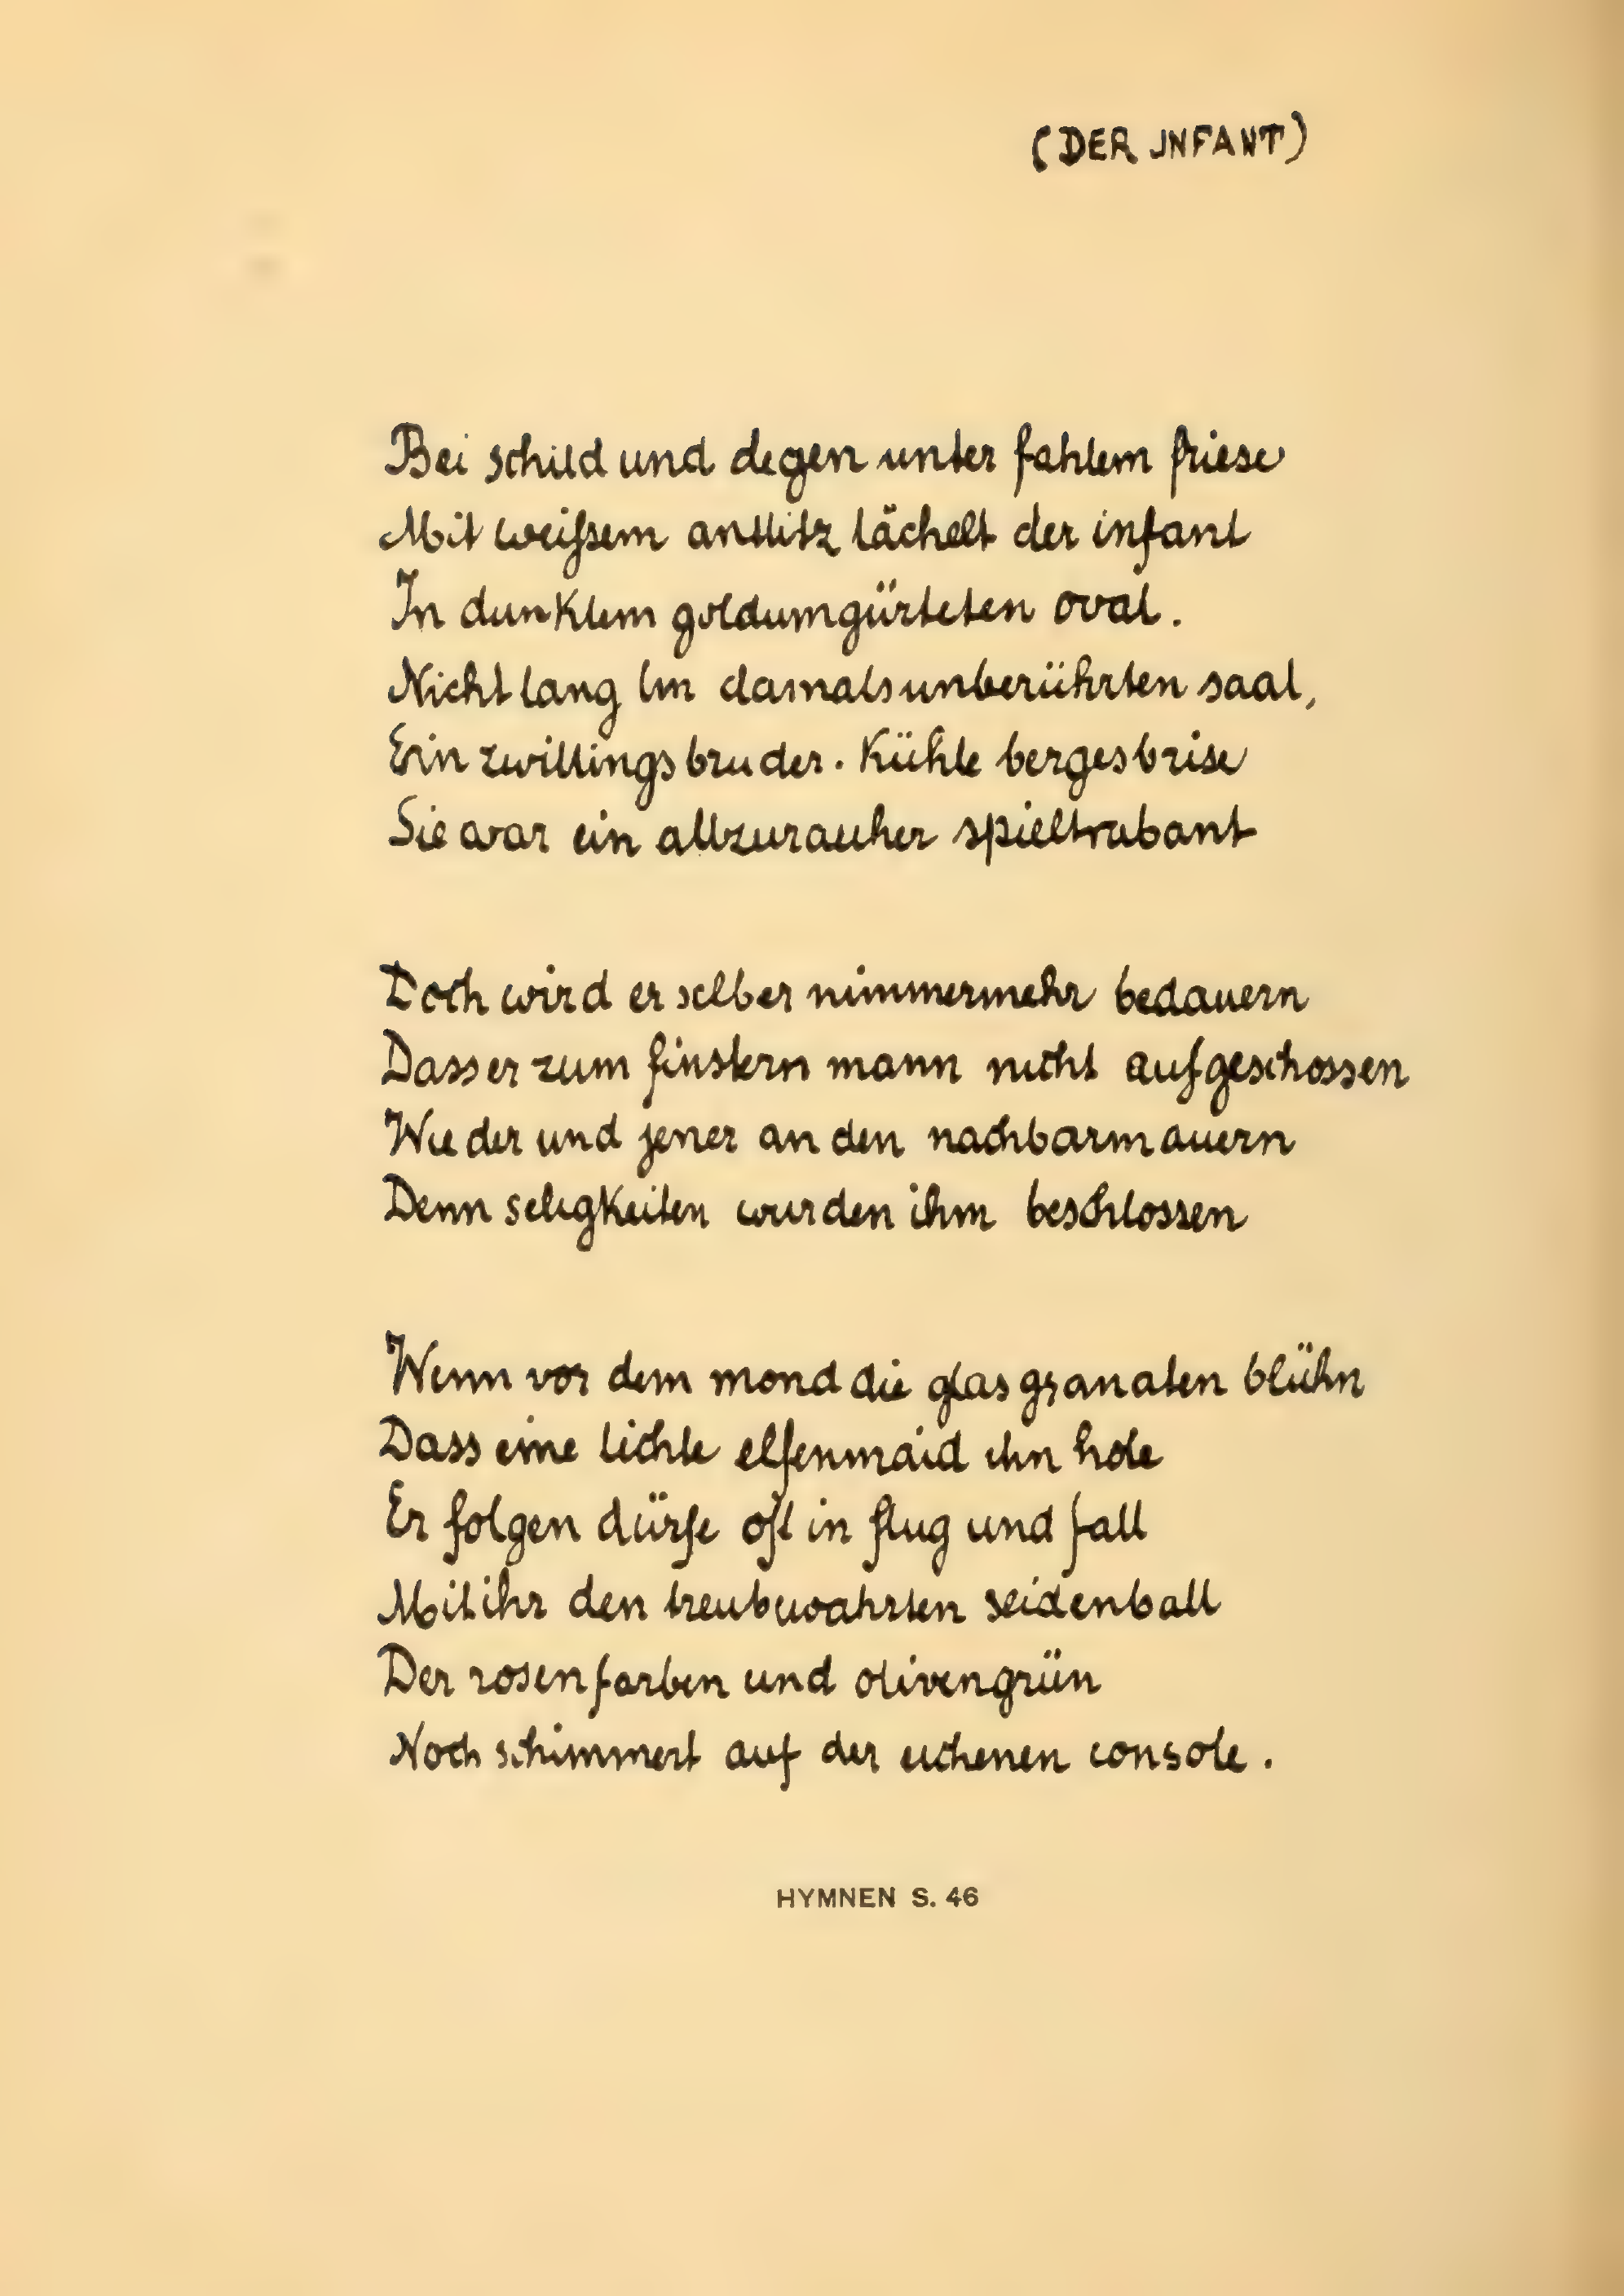 (DER INFANT)
Bei schild und degen unter fahlem friese
Mit weißem antlitz lächelt der infant
In dunklem goldumgürteten oval.
Nicht lang im damals unberührten saal,
Ein zwillingsbruder. Kühle bergesbrise
Sie war ein allzurauher spieltrabant
Doch wird er selber nimmermehr bedauern
Dass er zum finstern mann nicht aufgeschossen
Wie der und jener an den nachbarmauern
Denn seligkeiten wurden ihm beschlossen
Wenn vor dem mond die glasgranaten blühn
Dass eine lichte elfenmaid ihn hole
Er folgen dürfe oft in flug und fall
Mit ihr den treubewahrten seidenball
Der rosenfarben und olivengrün
Noch schimmert auf der eichenen console.
HYMNEN S. 46